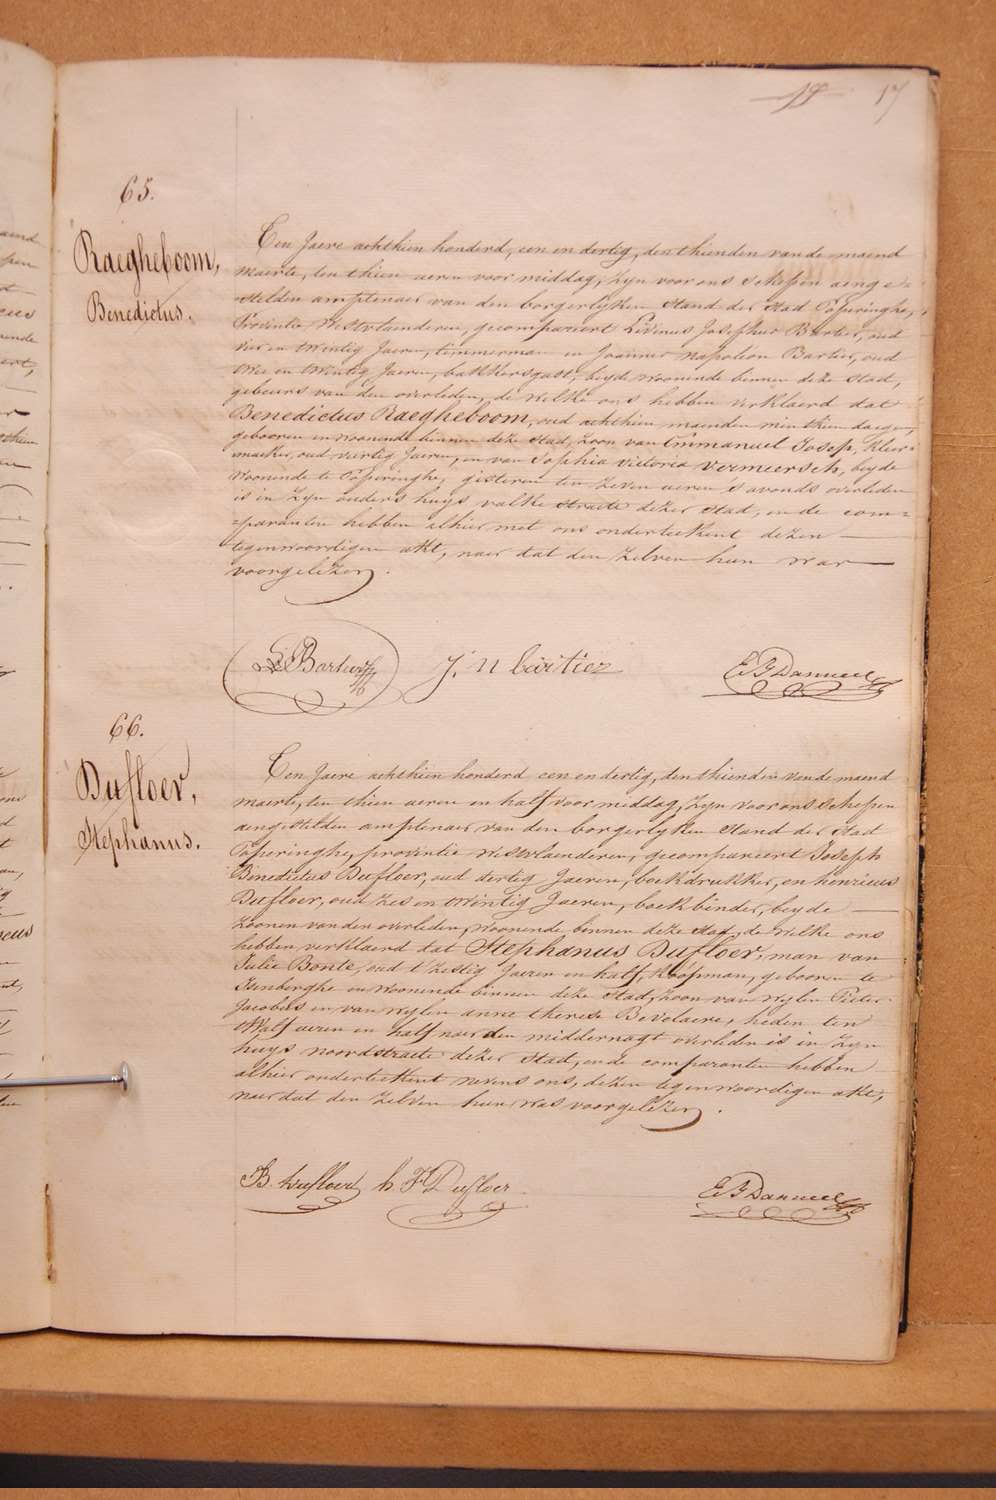 17
65.
Raegheboom,
Benedictus.
Ten Jaere achthien honderd, een en dertig, den thienden van de maend
maerte, ten thien aeren voor middag, zyn voor ons schepen aenge=
stelden amptenaer van den borgerlyken Stand der Stad Poperinghe,
Provintie Westvlaenderen, gecompareert Livinus Josephus Bartier, oud
vier en twintig Jaeren, timmerman en Joannes Napoleon Bartier, oud
twee en twintig Jaeren, bakkersgast, beyde woonende binnen deze stad,
gebeurs van den overleden, de welke ons hebben verklaerd dat
Benedictus Raegheboom, oud achthien maenden min thien daegen,
gebooren en woonende binnen deze Stad, zoon van Emmanuel Josep, kleer=
maeker, oud viertig Jaeren, en van Sophia Victoria Vermeersch, beyde
woonende te Poperinghe, gisteren ten zeven aeren 's avonds overleden
is in zyn ouders huys valke straete dezer Stad, en de com=
=paranten hebben alhier met ons onderteekent dezen
tegenwoordigen akt, naer dat den zelven hun was
voorgelezen.
L. Bartier J. N bartier E F Danneel
66.
Dufloer,
Stephanus.
Ten Jaere achthien honderd een en dertig, den thienden van de maend
maerte, ten thien aeren en half voor middag, zyn voor ons schepen
aengestelden amptenaer van den borgerlyken Stand der Stad
Poperinghe, provintie Westvlaenderen, gecompareert Joseph
Benedictus Dufloer, oud dertig Jaeren, boekdrukker, en henricus
Dufloer, oud zes en twintig Jaeren, boekbinder, beyde
zoonen van den overleden, woonende binnen deze Stad, de welke ons
hebben verklaerd dat Stephanus Dufloer, man van
Julie Bonte, oud t'zestig Jaeren en half, koopman, gebooren te
Isenberghe en woonende binnen deze Stad, zoon van wylen Pieter
Jacobus en van wylen anne therese Bevelaere, heden ten
twalf aeren en half naer den middernagt overleden is in zyn
huys noordstraete dezer Stad, en de comparanten hebben
alhier onderteekent nevens ons, dezen tegenwoordigen akt,
naer dat den zelven hun was voorgelezen.
B. Dufloer h F Dufloer E F Danneel